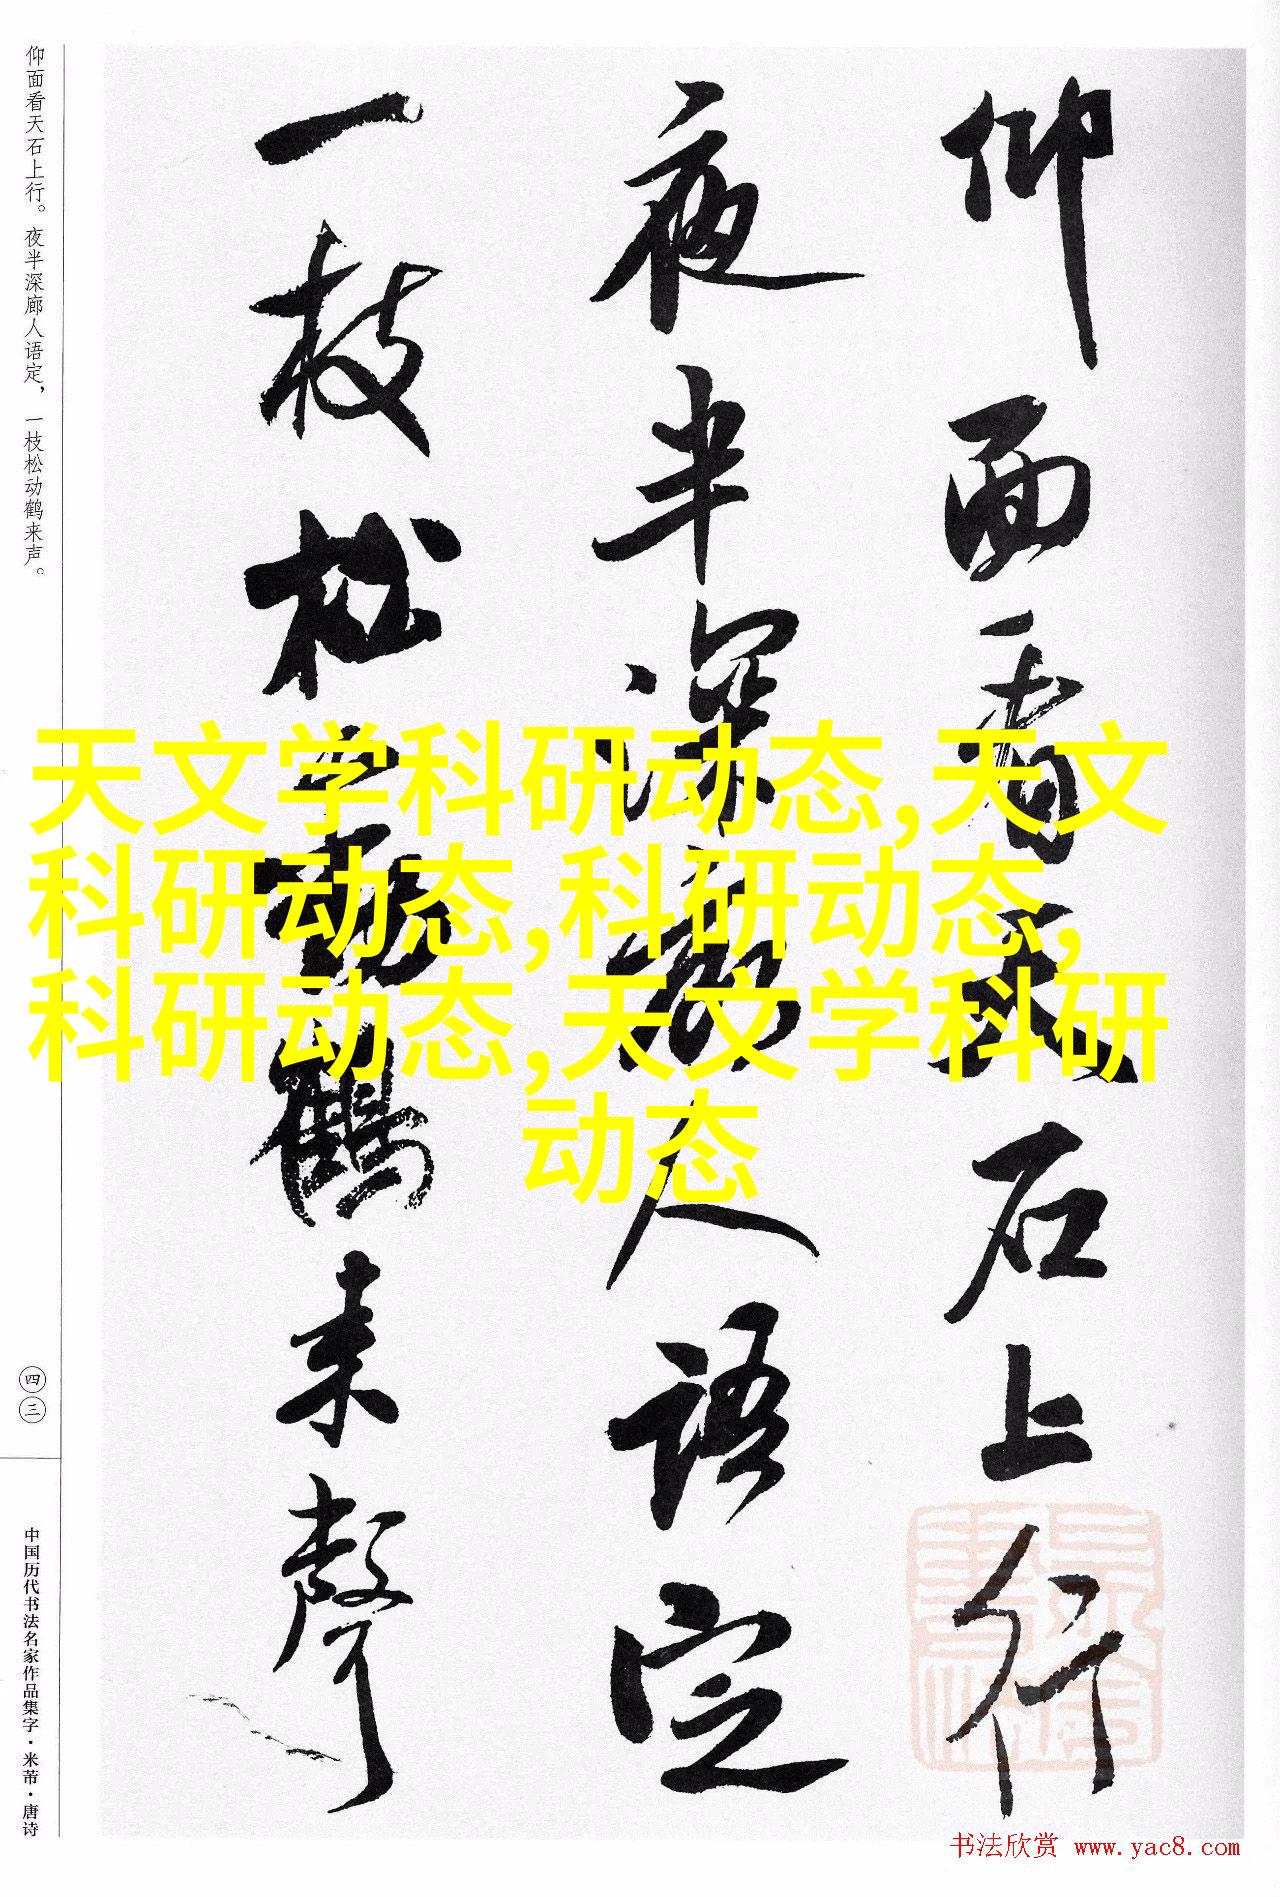 仰面看天石上行
夜半深廊人語定
一枝松動鶴来聲
仰面看天石上行。夜半深廊人语定，一枝松动鹤来声。
四三
中国历代书法名家作品集字·米芾·唐诗
天文学科研动态,天文
科研动态,科研动态,
科研动态,天文学科研
动态
书法欣赏 www.yac8.com